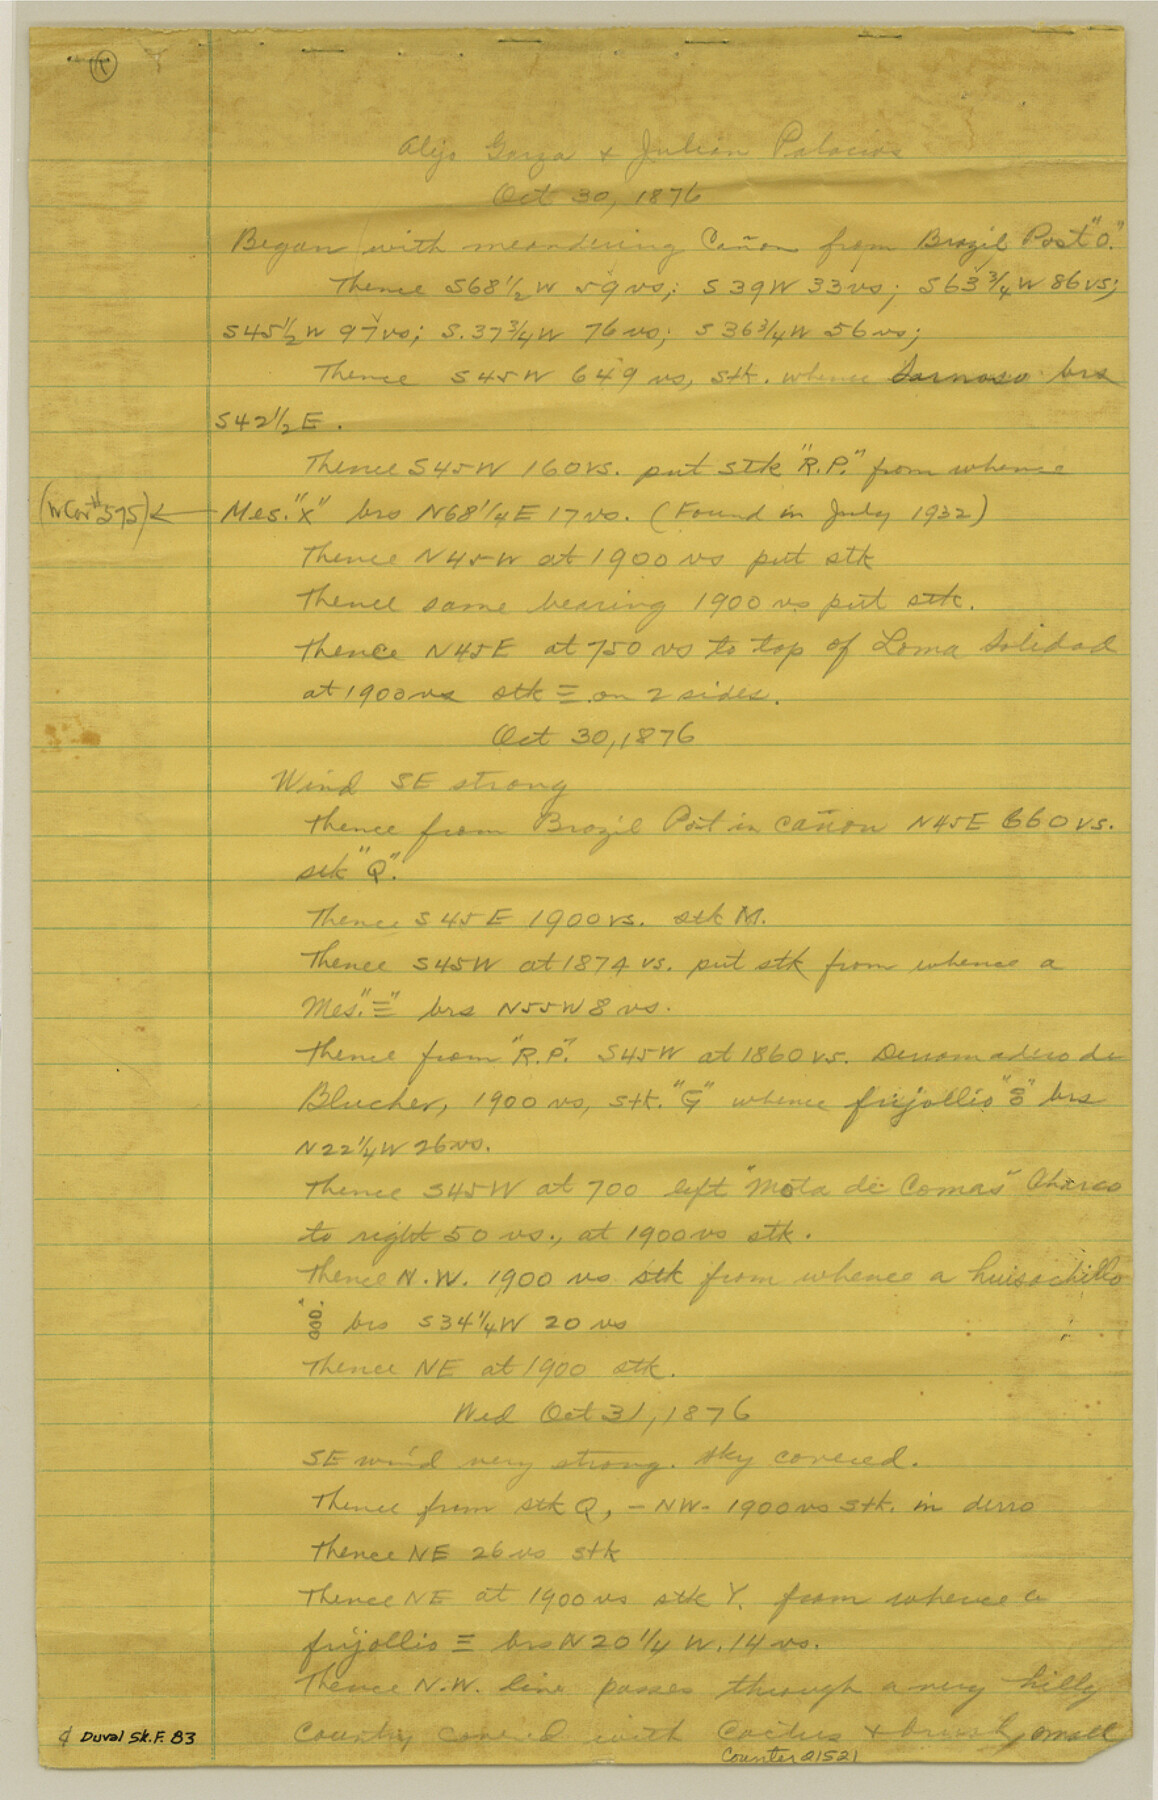 Alijo Garza & Julian Palacios
Oct 30, 1876
Began with meandering Cañon from Brazil Post "O."
Thence S68½W 59vs; S39W 33vs; S63¾W 86vs;
S45½W 97vs; S.37¾W 76vs; S36¾W 56vs;
Thence S45W 649 vs, stk. whence brs
S42½E.
Thence S45W 160vs. put stk "R.P." from whence
(W Cor #575) ← Mes. "X" brs N68¼E 17vs. (Found in July 1932)
Thence N45W at 1900 vs put stk
Thence same bearing 1900 vs put stk.
Thence N45E at 750 vs to top of Loma Solidad
at 1900vs stk = on 2 sides.
Oct 30, 1876
Wind SE strong
Thence from Brazil Post in cañon N45E 660vs.
stk "Q".
Thence S45E 1900vs. stk M.
Thence S45W at 1874 vs. put stk from whence a
Mes. "≡" brs N55W 8 vs.
Thence from "R.P." S45W at 1860 vs. de
Blucher, 1900 vs, stk. "G" whence frijollio "8" brs
N22¼W 26vs.
Thence S45W at 700 left "Mota de Comas" Charco
to right 50 vs., at 1900vs stk.
Thence N.W. 1900 vs stk from whence a huisachillo
brs S34¼W 20 vs
Thence NE at 1900 stk.
Wed Oct 31, 1876
SE wind very strong. Sky covered.
Thence from stk Q, - NW - 1900vs stk. in derro
Thence NE 26vs stk
Thence NE at 1900vs stk Y. from whence a
frijollio ≡ brs N20¼ W. 14 vs.
Thence N.W. line passes through a very hilly
country with Cactus & brush, small
¢ Duval Sk.F. B3
Counter 21521